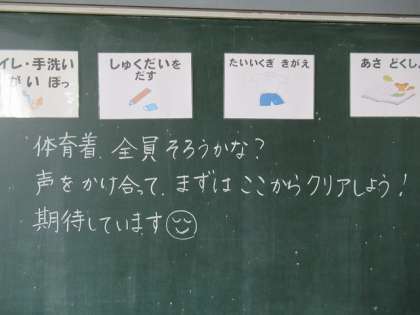 イレ・手洗い
がい ぽっ
しゅくだいを
だす
たいいくぎ きがえ
あさ どくし
体育着、全員そろうかな?
声をかけ合って、まずはここからクリアしよう!
期待しています